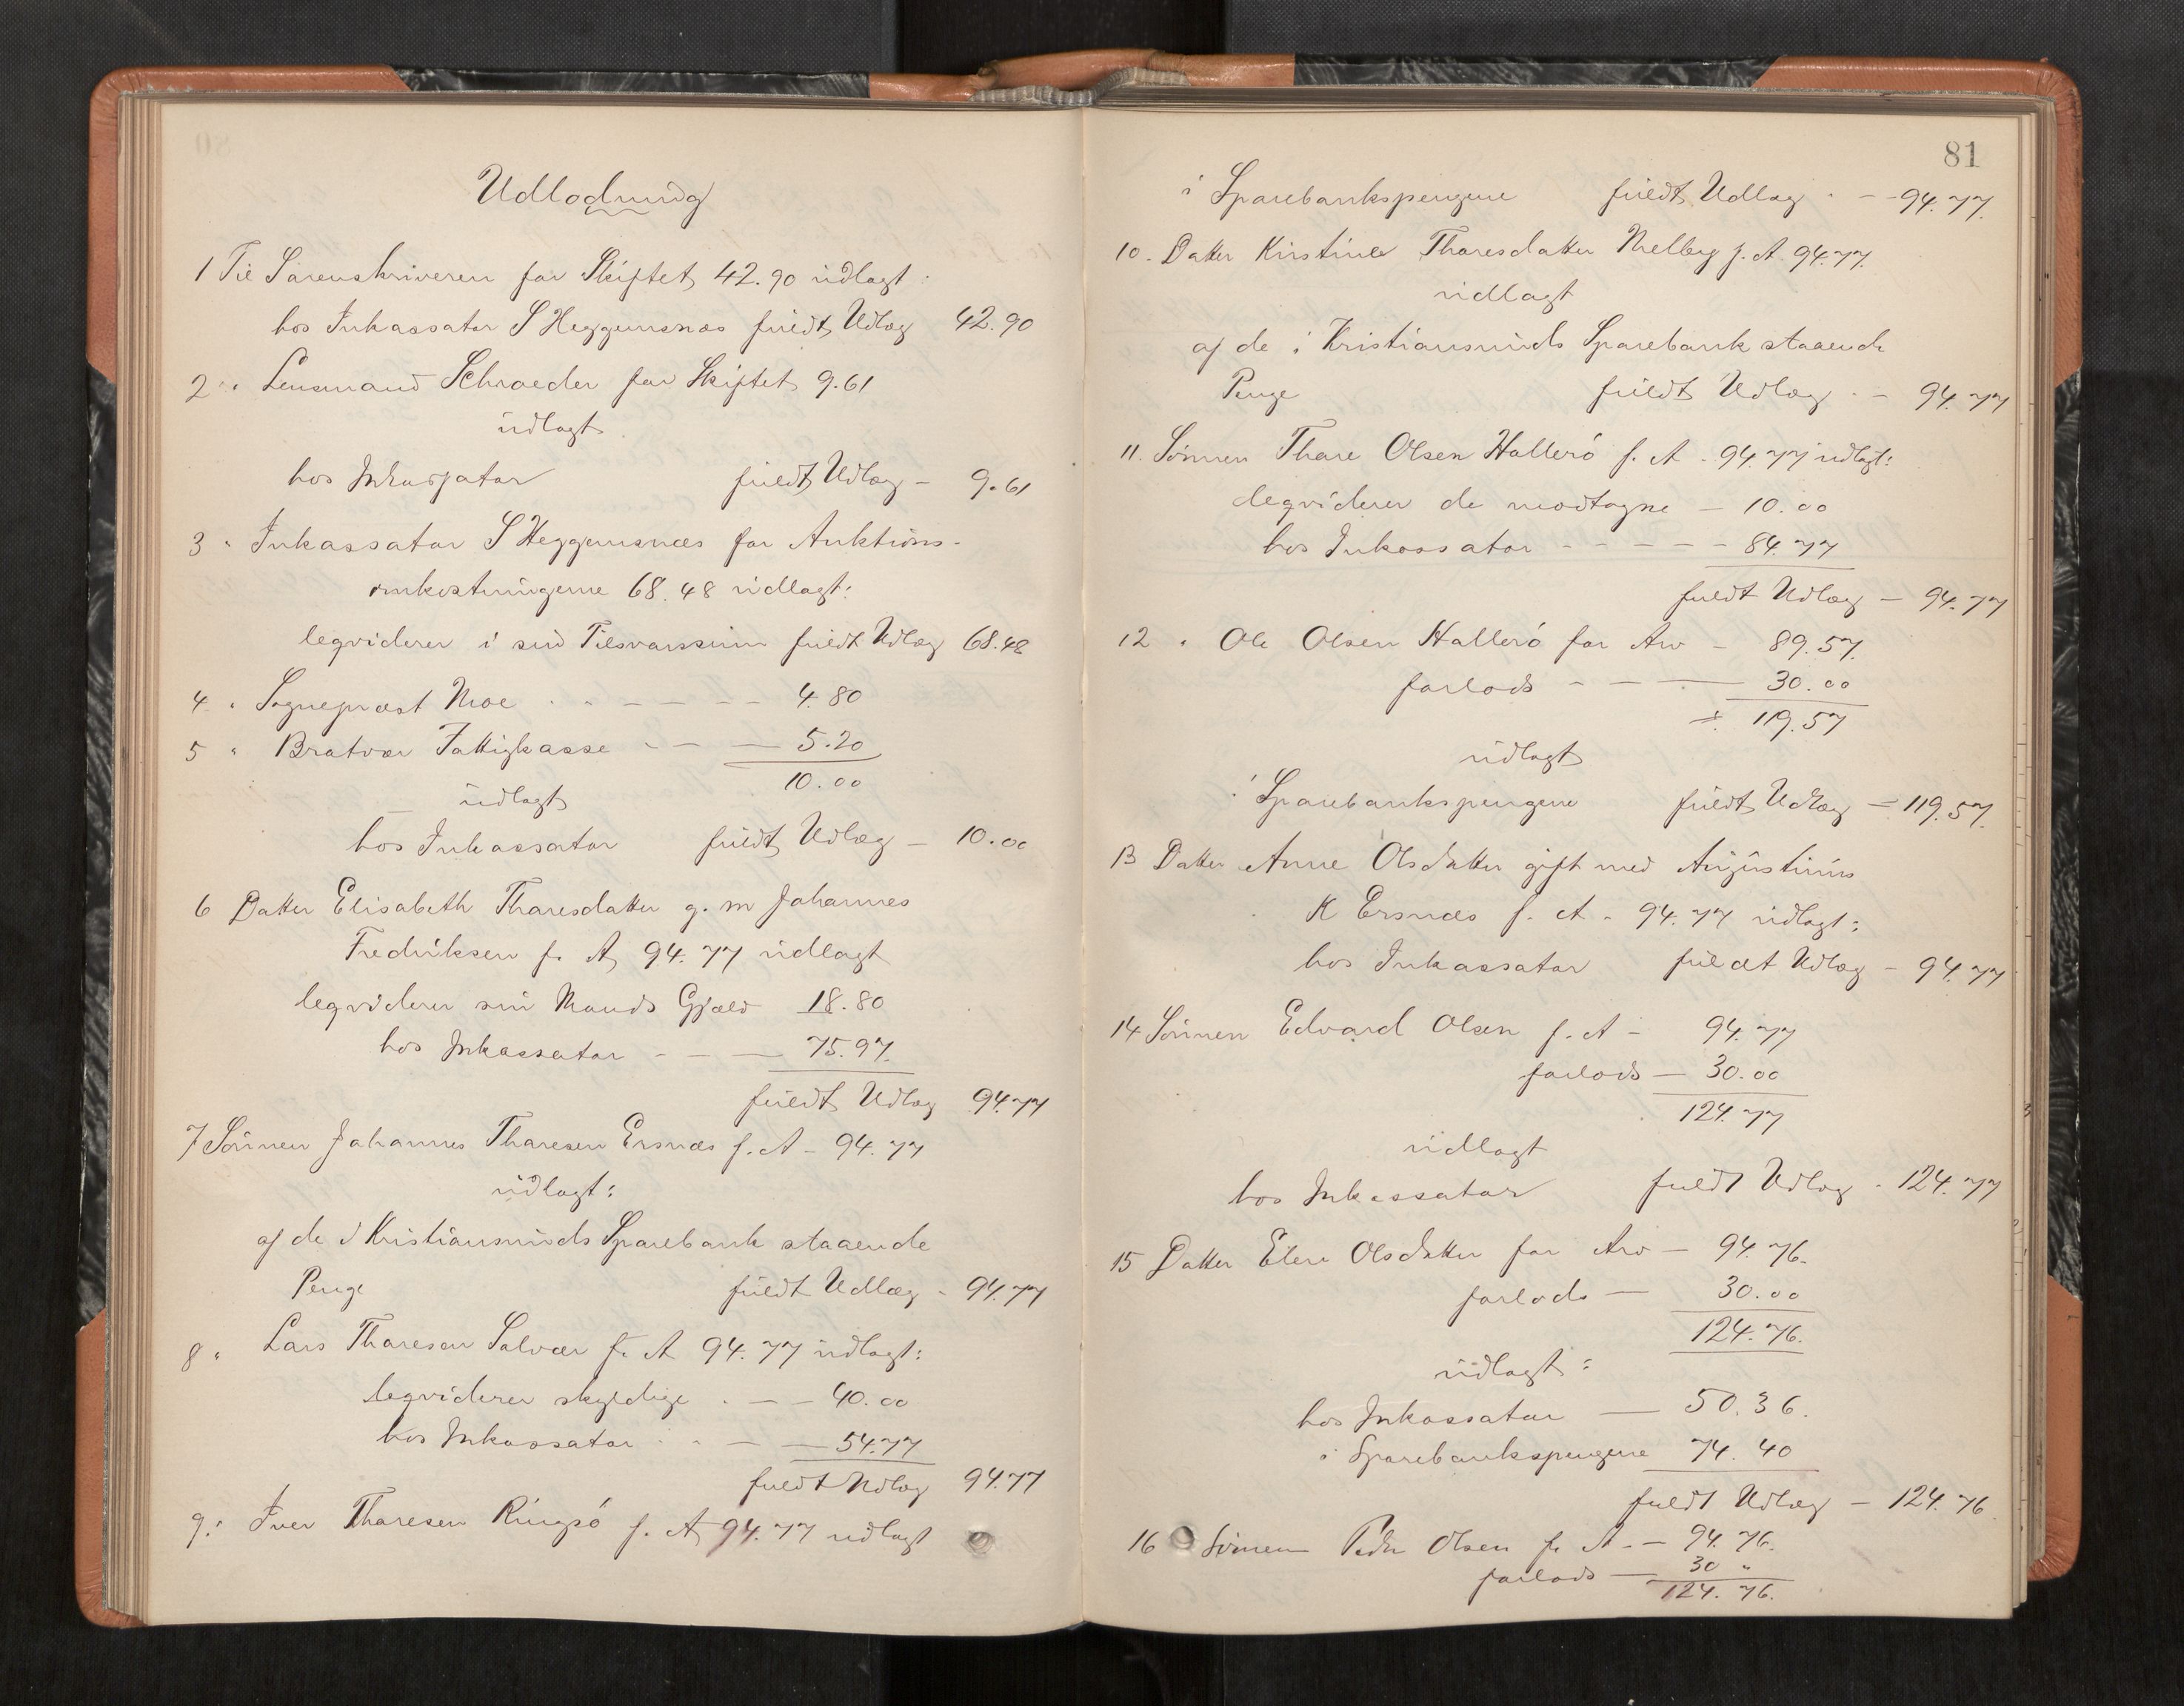 Udlodning
1 Til Sorenskriveren for Skiftet 42.90 udlagt:
hos Inkassator S Heggemsnæs fuldt Udlæg 42.90
2 " Lensmand Schroeder for Skiftet 9.61
udlagt
hos Inkassator fuldt Udlæg - 9.61
3 " Inkassator S Heggemsnæs for Auktions-
omkostningerne 68.48 udlagt:
leqviderer i sin Tilsvarssum fuldt Udlæg 68.48
4 " Sogneprest Moe - - - - 4.80
5 " Bratvær Fattigkasse - - - 5.20
10.00
udlagt
hos Inkassator fuldt Udlæg - 10.00
6 Datter Elisabeth Tharesdatter g. m Johannes
Fredriksen f. A 94.77 udlagt
leqviderer sin Mands Gjæld 18.80
hos Inkassator - - - 75.97.
fuldt Udlæg 94.77
7 Sönnen Johannes Tharesen Ersnæs f. A - 94.77
udlagt:
af de i Kristiansunds Sparebank staaende
Penge fuldt Udlæg - 94.77
8 " Lars Tharesen Solvær f. A 94.77 udlagt:
leqviderer skyldige - - - 40.00
hos Inkassator - - - 54.77
fuldt Udlæg 94.77
9. " Iver Tharesen Ringsö f. A 94.77 udlagt
81
i Sparebankspengene fuldt Udlæg - - 94.77.
10. Datter Kirstine Tharesdatter Melberg f. A 94.77.
udlagt
af de i Kristiansunds Sparebank staaende
Penge fuldt Udlæg - - 94.77
11. Sönnen Thare Olsen Hallerö f. A - 94.77 udlagt:
leqviderer de modtagne - 10.00
hos Inkassator - - - - - 84.77
fuldt Udlæg - 94.77
12 " Ole Olsen Hallerö for Arv - 89.57.
forlods - - - 30.00
119.57
udlagt
i Sparebankspengene fuldt Udlæg - 119.57.
13 Datter Anne Olsdatter gift med Augustinus
K Ersnæs f. A - 94.77 udlagt:
hos Inkassator fuldt Udlæg - 94.77
14 Sönnen Edvard Olsen f. A - 94.77
forlods - 30.00
124.77
udlagt
hos Inkassator fuldt Udlæg - 124.77
15 Datter Elen Olsdatter for Arv - 94.76.
forlods - 30.00
124.76.
udlagt:
hos Inkassator - 50.36.
i Sparebankspengene 74.40
fuldt Udlæg - 124.76
16 Sönnen Peder Olsen f. A - - 94.76.
forlods - 30 "
124.76.